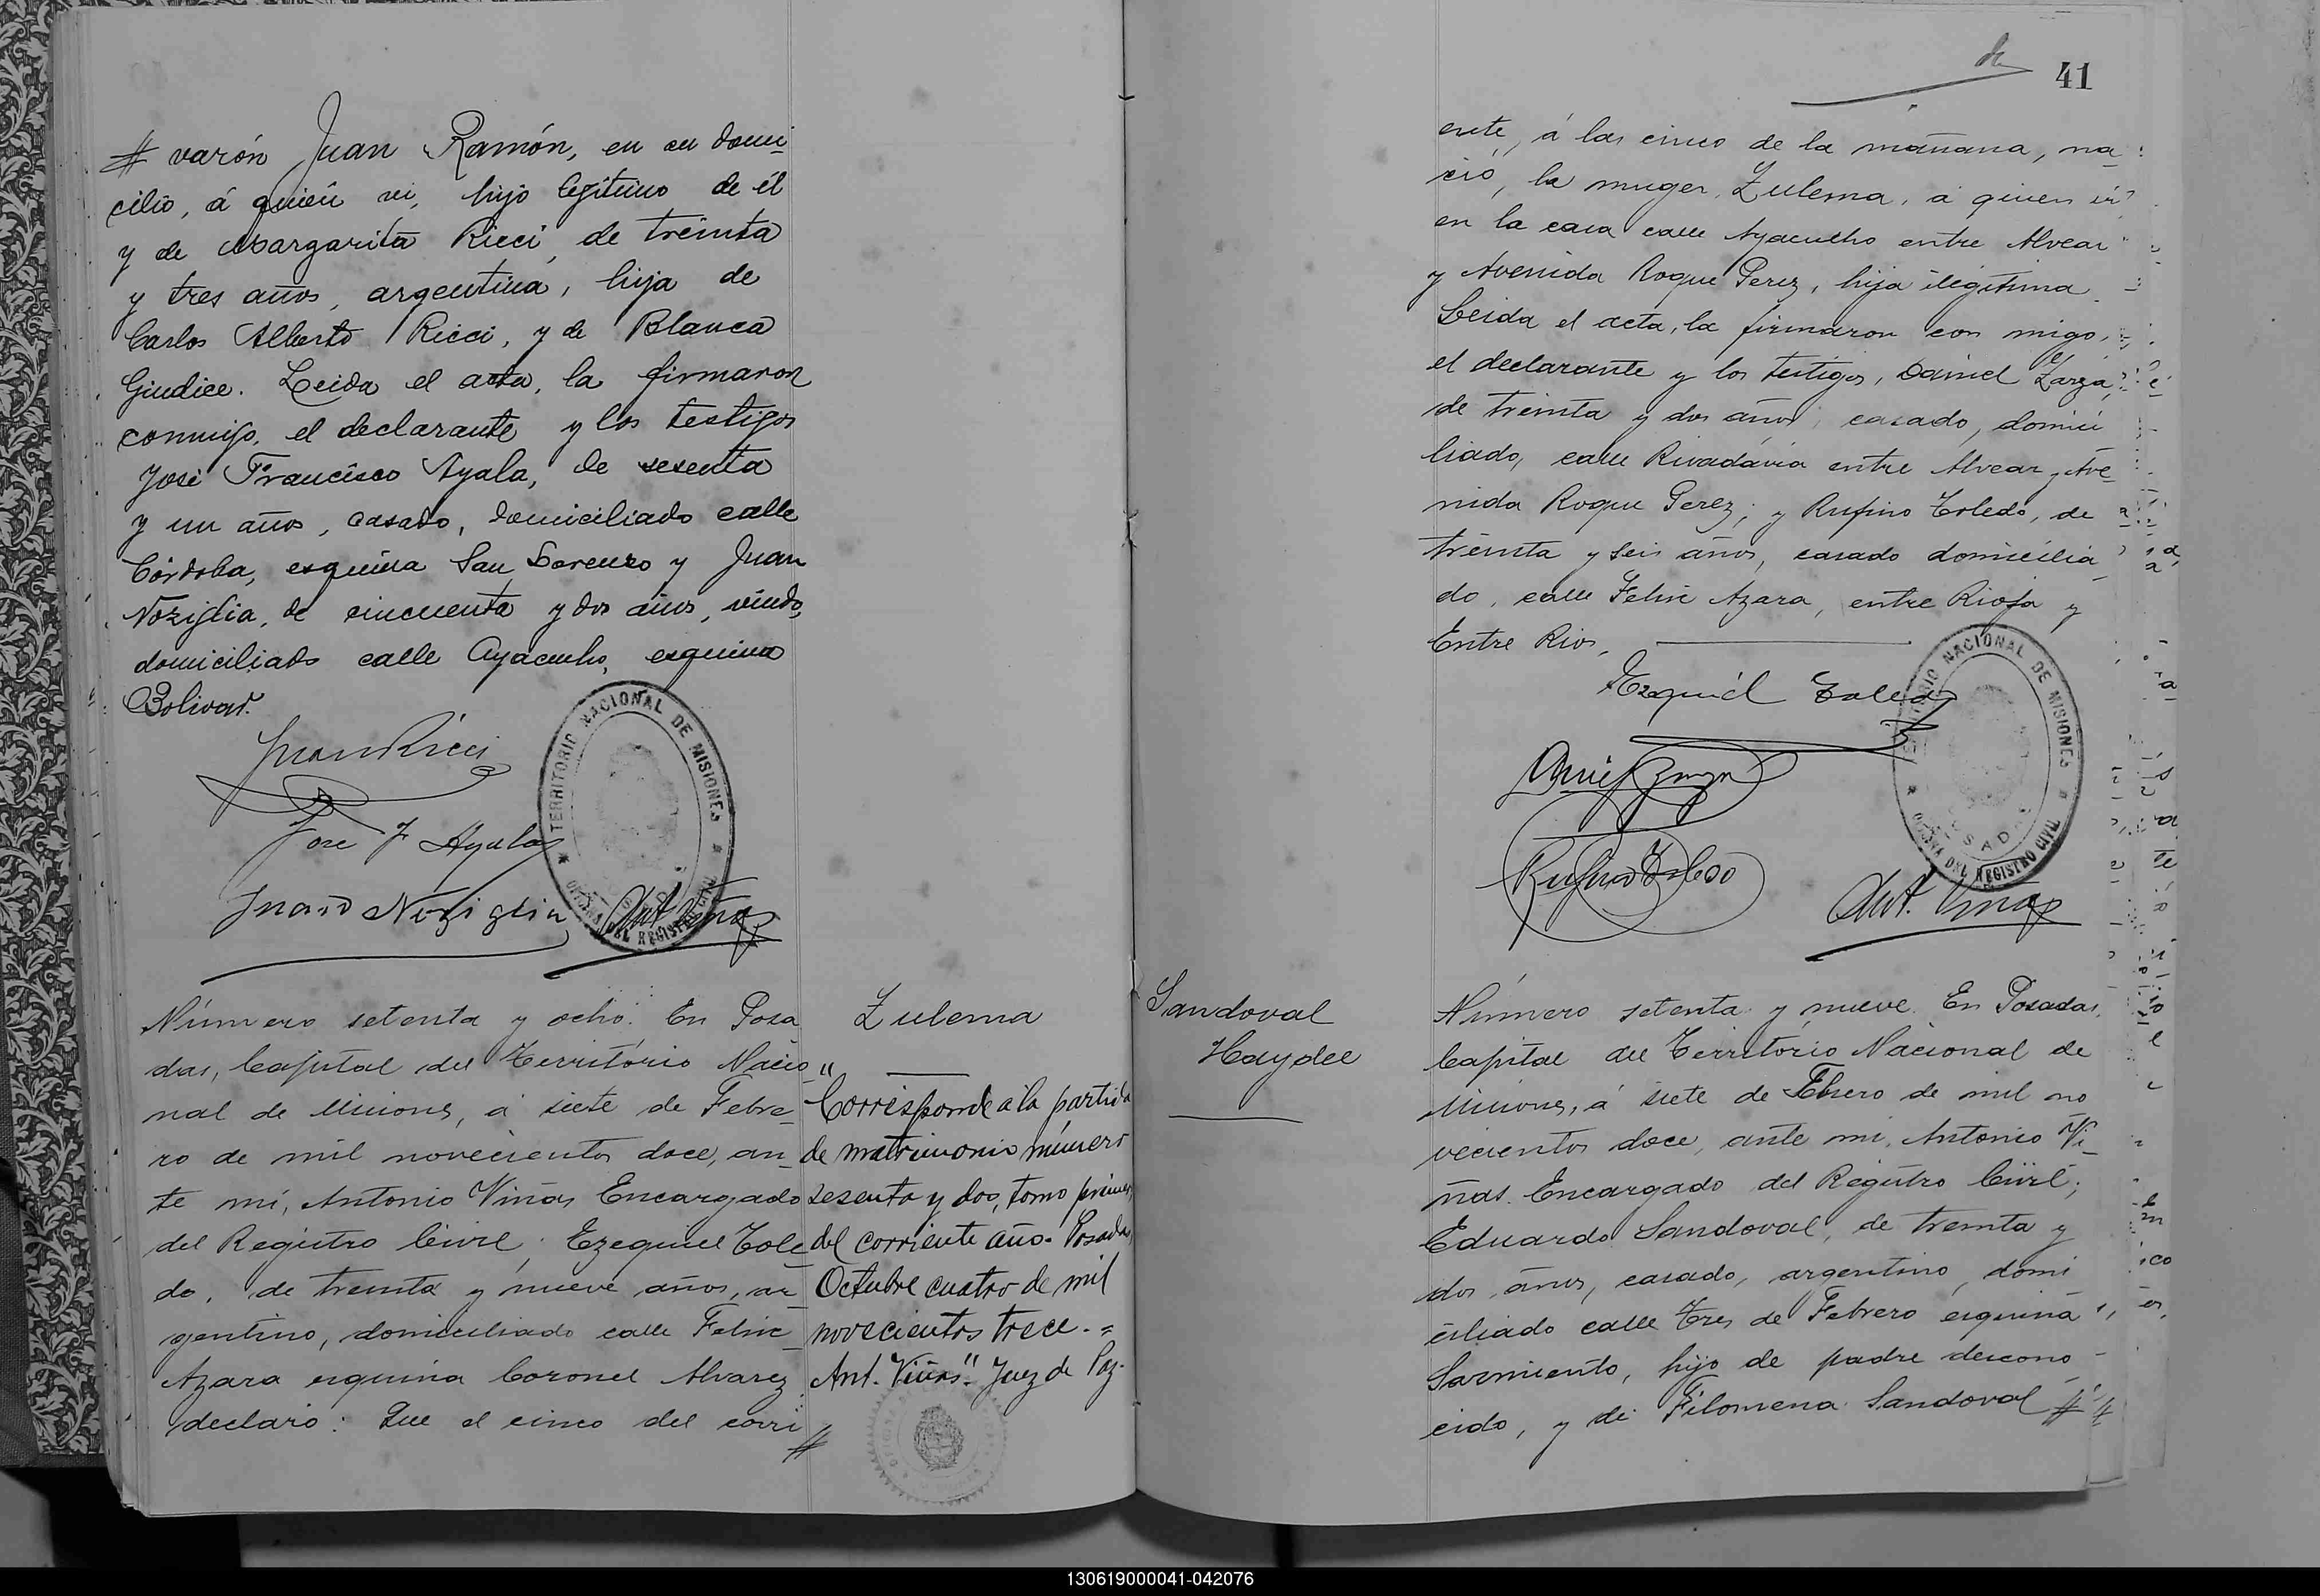 # varón Juan Ramón, en su domi-
cilio, á quién vi, hijo legitimo de él
y de Margarita Ricci, de treinta
y tres años, argentina, hija de
Carlos Alberto Ricci, y de Blanca
Giudice. Leida el acta, la firmaron
conmigo, el declarante y los testigos
José Francisco Ayala, de sesenta
y un años, casado, domiciliado calle
Córdoba, esquina San Lorenzo y Juan
Noziglia, de cincuenta y dos años, viudo,
domiciliado calle Ayacucho, esquina
Bolivar.
Juan Ricci
Jose F Ayala
Juan Noziglia
Ant. Viñas
TERRITORIO NACIONAL DE MISIONES
OFICINA DEL REGISTRO CIVIL
Número setenta y ocho. En Posa
das, Capital del Territorio Nacio
nal de Misiones, á siete de Febre-
ro de mil novecientos doce, an-
te mi, Antonio Viñas Encargado
del Registro Civil, Ezequiel Tole
do, de treinta y nueve años, ar-
gentino, domiciliado calle Felix
Azara esquina Coronel Alvarez
declaró: Que el cinco del corri
#
Zulema
"Corresponde a la partida
de matrimonio número
sesenta y dos, tomo primero
del corriente año. Posadas,
Octubre cuatro de mil
novecientos trece.=
Ant. Viñas" Juez de Paz.
41
ente, á las cinco de la mañana, na
ció, la muger, Zulema, á quien vi
en la casa calle Ayacucho entre Alvear
y Avenida Roque Perez, hija ilegitima.
Leida el acta, la firmaron con migo,
el declarante y los testigos, Daniel Zarza,
de treinta y dos años, casado, domici
liado, calle Rivadavia entre Alvear y Ave
nida Roque Perez; y Rufino Toledo, de
treinta y seis años, casado domicilia
do, calle Felix Azara, entre Rioja y
Entre Rios,
Ezequiel Toledo
Daniel Zarza
Rufino Toledo
Ant. Viñas
TERRITORIO NACIONAL DE MISIONES
POSADAS
OFICINA DEL REGISTRO CIVIL
Sandoval
Haydee
Número setenta y nueve. En Posadas,
Capital del Territorio Nacional de
Misiones, á siete de Febrero de mil no
vecientos doce, ante mi, Antonio Vi-
ñas. Encargado del Registro Civil;
Eduardo Sandoval, de treinta y
dos años, casado, argentino, domi
ciliado calle Tres de Febrero esquina
Sarmiento, hijo de padre descono
cido, y de Filomena Sandoval #
130619000041-042076